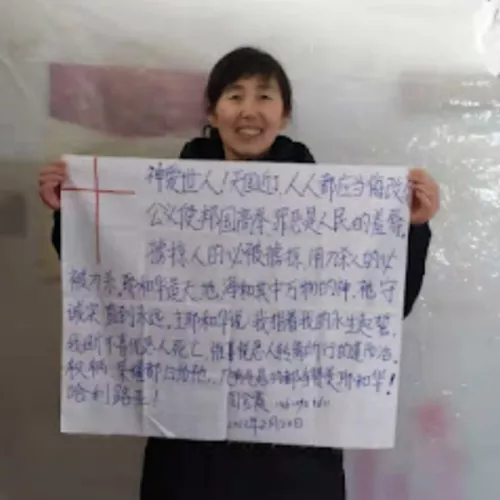 神爱世人!天国近了人人都应当悔改
公义使邦国高举罪恶是人民的羞辱。
掳掠人的必被掳掠,用刀杀人的必
被刀杀。耶和华造天、地、海和其中万物的神,祂守
诚实直到永远。主耶和华说:我指着我的永生起誓,
我断不喜悦恶人死亡,惟喜悦恶人转离所行的道而活。
权柄 荣耀都 给他。凡有气息的都要赞美耶和华!
哈利路亚!
2022年2月20日